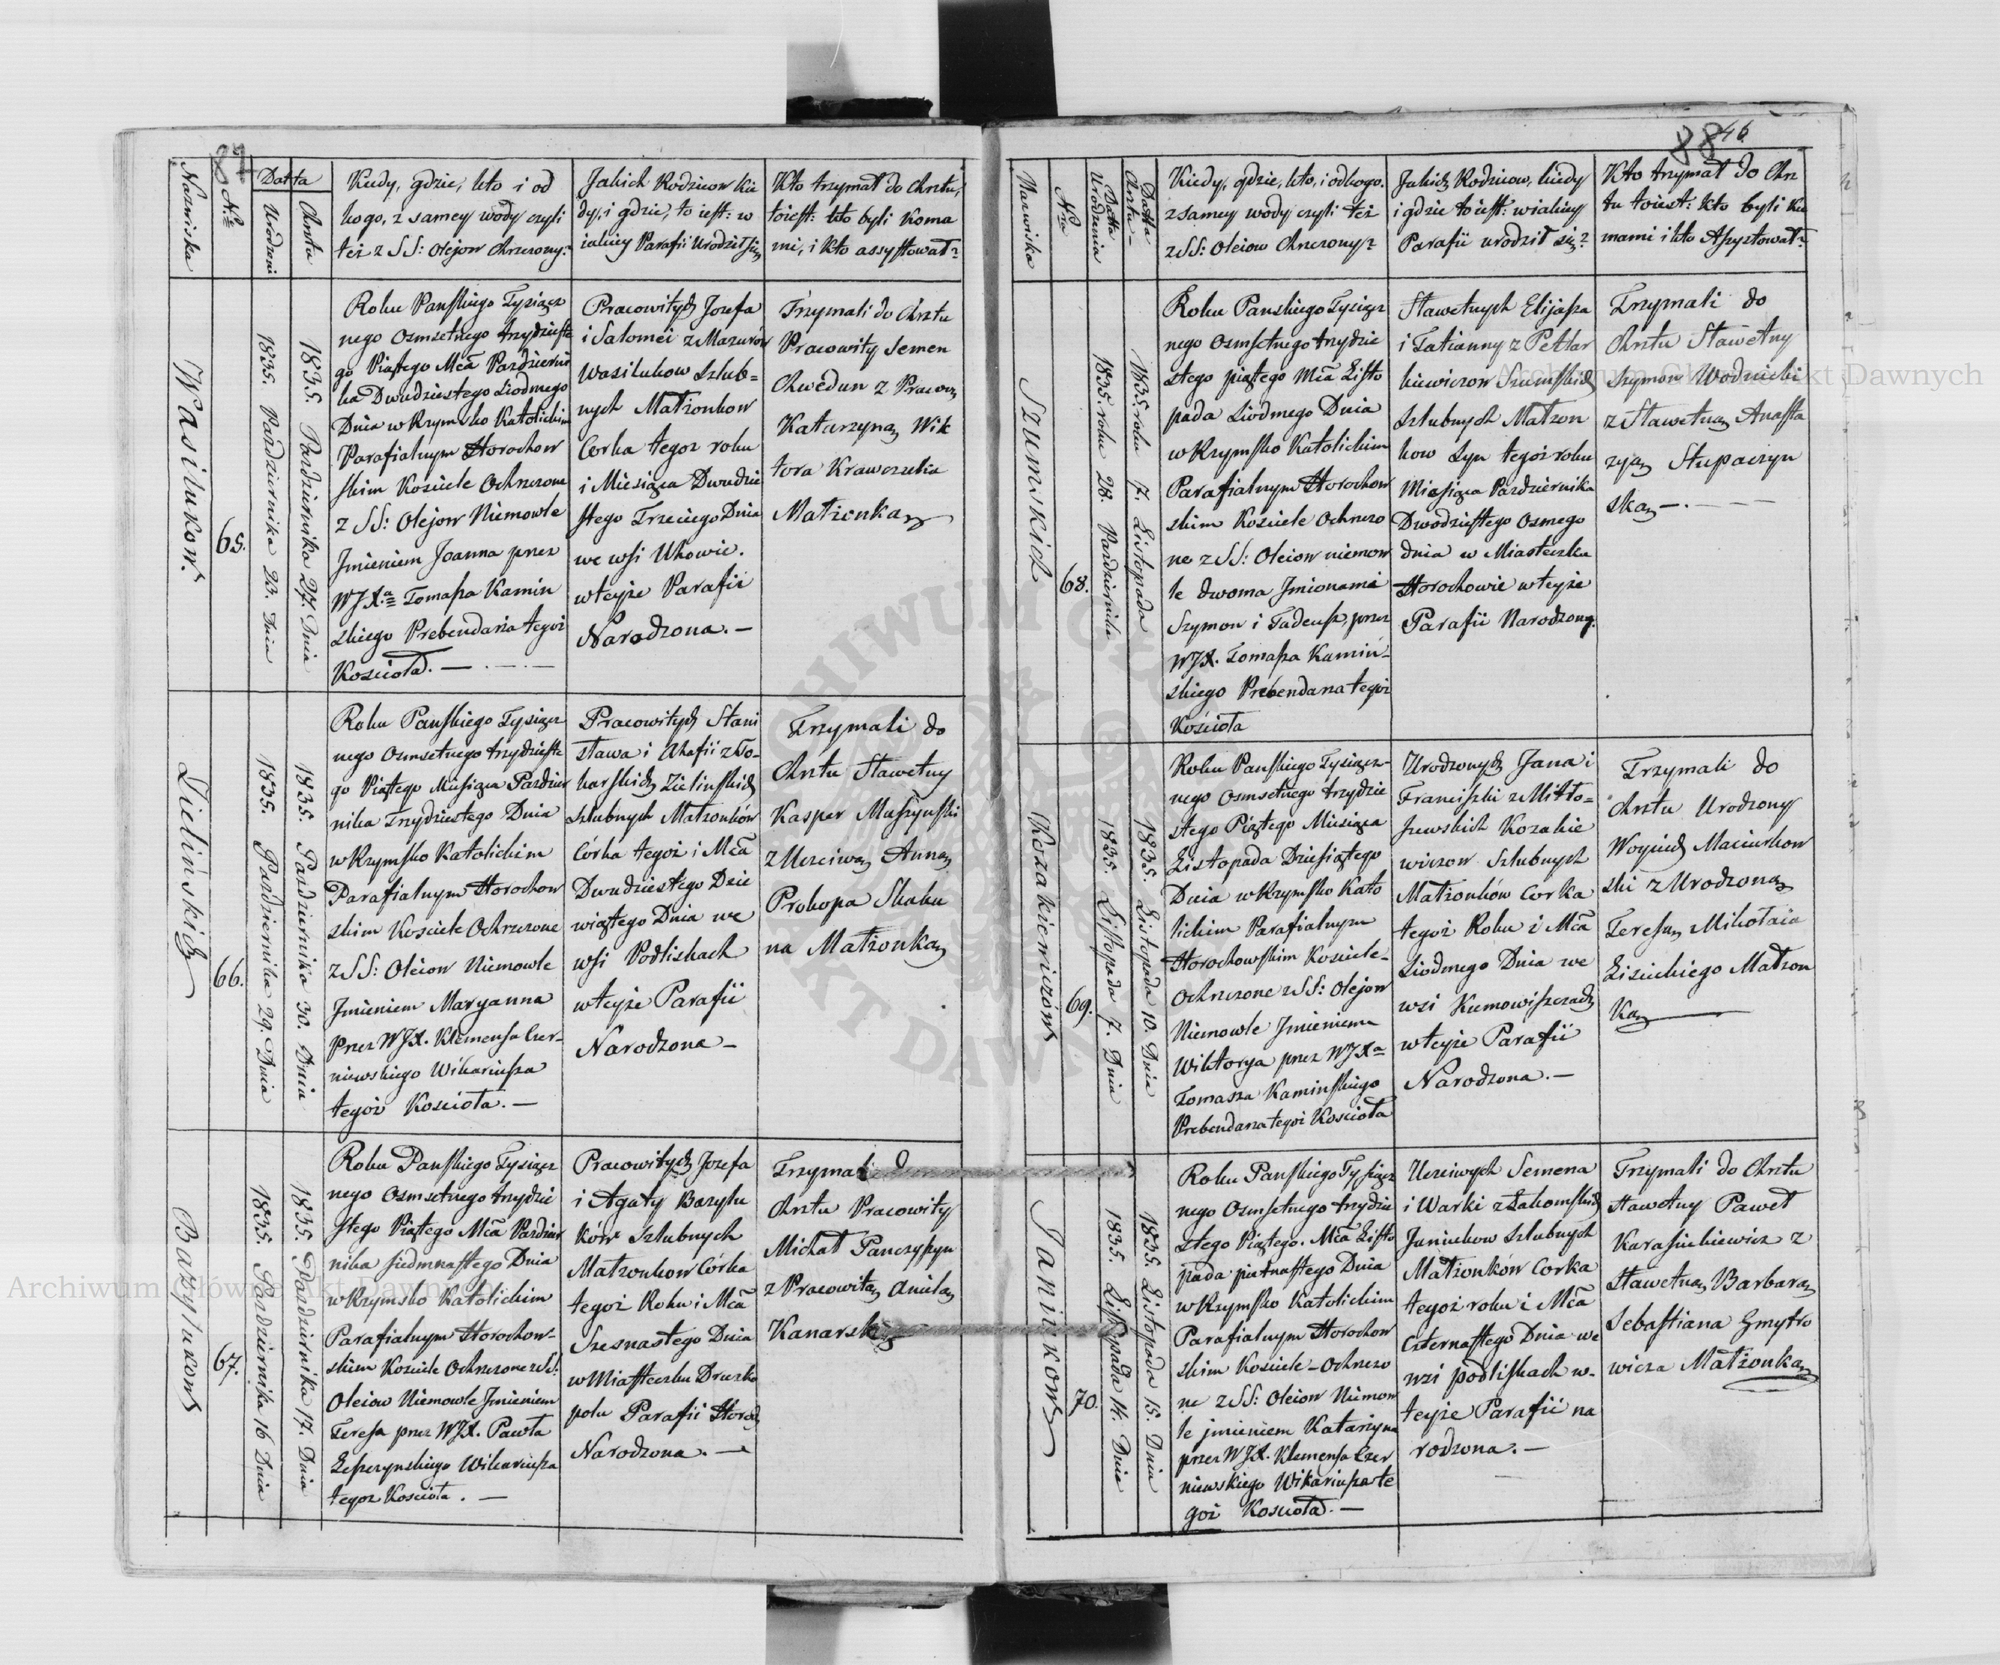 87
Nazwiska
N<sup>o</sup>
Datta
Urodzeni
Chrztu
Kiedy, gdzie, kto i od
kogo, z samey wody czyli
też z SS: Olejow Chrzczony?
Jakich Rodzicow kie
dy, i gdzie, to iest: w
iakiey Parafii Urodził się
Kto trzymał do Chrztu,
toiest: kto byli Kuma
mi, i kto assystował?
Wasilukow.
65.
1835. Pazdziernika 23. Dnia
1835. Pazdziernika 27. Dnia
Roku Panskiego Tysiącz
nego Osmsetnego trzydzieste
go Piątego Mca Pazdzierni
ka Dwudziestego Siodmego
Dnia w Rzymsko Katolickim
Parafialnym Horochow
skim Kosciele Ochrzczone
z SS: Olejow Niemowle
Jmieniem Joanna przez
WJXa Tomasza Kamin
skiego Prebendaria tegoż
Kościoła. —
Pracowitych Jozefa
i Salomei z Mazurów
Wasilukow Szlub=
nych Małżonkow
Corka tegoż roku
i Miesiąca Dwudzie
stego Trzeciego Dnia
we wsi Uhowie.
w teyże Parafii
Narodzona. —
Trzymali do Chrztu
Pracowity Semen
Chwedun z Pracow.
Katarzyną Wik
tora Krawczuka
Małżonką
Zielińskich
66.
1835. Pazdziernika 29. Dnia
1835. Pazdziernika 30. Dnia
Roku Panskiego Tysiącz
nego Osmsetnego trzydzieste
go Piątego Miesiąca Pazdzier
nika Trzydziestego Dnia
w Rzymsko Katolickim
Parafialnym Horochow
skim Kosciele Ochrzczone
z SS: Oleiow Niemowle
Jmieniem Maryanna
przez WJX. Klemensa Czer-
niewskiego Wikariusza
tegoż Kościoła. —
Pracowitych Stani
sława i Ahafii z So-
karskich Zielinskich
Szlubnych Małżonków
Córka tegoż i Mca
Dwudziestego Dzie
wiątego Dnia we
wsi Podliskach
w teyże Parafii
Narodzona —
Trzymali do
Chrztu Sławetny
Kasper Muszynski
z Uczciwą Anną
Prokopa Skaku
na Małżonką
Bazylukow
67.
1835. Pazdziernika 16 Dnia
1835. Pazdziernika 17. Dnia
Roku Panskiego Tysiącz
nego Osmsetnego trzydzie
stego Piątego Mca Pazdzier
nika siedmnastego Dnia
w Rzymsko Katolickim
Parafialnym Horochow-
skim Kosciele Ochrzczone z SS:
Oleiow Niemowle Jmieniem
Teressa przez WJX. Pawła
Leszczynskiego Wikariusza
tegoż Kościoła. —
Pracowitych Jozefa
i Agaty Bazylu
ków Szlubnych
Małżonkow Córka
tegoż Roku i Mca
Szesnastego Dnia
w Miasteczku Druzko
polu Parafii Horoch.
Narodzona. —
Trzymali do
Chrztu Pracowity
Michał Panczyszyn
z Pracowitą Anielą
Kanarską
88
46
Nazwiska
N<sup>o</sup>
Datta Urodzenia
Datta Chrztu —
Kiedy, gdzie, kto, i od kogo.
z samey wody czyli też
z SS: Oleiow Chrzczony?
Jakich Rodzicow, kiedy
i gdzie to iest: w iakiey
Parafii urodził się?
Kto trzymał do Chrz
tu toiest: kto byli Ku
mami i kto Assystował?
Szumskich
68.
1835 roku 28. Pazdziernika
1835. roku 7. Listopada
Roku Panskiego Tysiącz
nego Osmsetnego trzydzie
stego piątego Mca Listo
pada Siodmego Dnia
w Rzymsko Katolickim
Parafialnym Horochow
skim Kosciele Ochrzczo
ne z SS: Oleiow niemow
le dwoma Jmionami
Szymon i Tadeusz, przez
WJX. Tomasza Kamiń-
skiego Prebendarza tegoż
Kościoła
Sławetnych Elijasza
i Tatianny z Petlar
kiewiczow Szumskich
Szlubnych Małżon
kow Syn tegoż roku
Miesiąca Pazdziernika
Dwodziestego Osmego
dnia w Miasteczku
Horochowie w teyże
Parafii Narodzony.
Trzymali do
Chrztu Sławetny
Szymon Wodnicki
z Sławetną Anasta
zyą Stupaczyn
ską —
Kozakiewiczów
69.
1835. Listopada 7. Dnia
1835. Listopada 10. Dnia
Roku Panskiego Tysiącz-
nego Osmsetnego trzydzie
stego Piątego Miesiąca
Listopada Dziesiątego
Dnia w Rzymsko Kato
lickim Parafialnym
Horochowskim Kosciele-
Ochrzczone z SS: Olejow
Niemowle Jmieniem
Wiktorya przez WJXa
Tomasza Kaminskiego
Prebendarza tegoż Kościoła
Urodzonych Jana i
Franciszki z Miło=
szewskich Kozakie
wiczow Szlubnych
Małżonków Corka
tegoż Roku i Mca
Siodmego Dnia we
wsi Kumowiszczach
w teyże Parafii
Narodzona. —
Trzymali do
Chrztu Urodzony
Woyciech Maciurkow
ski z Urodzoną
Teressą Mikołaia
Lisieckiego Małżon
ką
Janiukow
70.
1835. Listopada 14. Dnia
1835. Listopada 15. Dnia
Roku Panskiego Tysiącz
nego Osmsetnego trzydzie
stego Piątego. Mca Listo
pada piętnastego Dnia
w Rzymsko Katolickim
Parafialnym Horochow
skim Kosciele - Ochrzczo
ne z SS: Oleiow Niemow
le jmieniem Katarzyna
przez WJX. Klemensa Czer
niewskiego Wikariusza te
goż Kościoła. —
Uczciwych Semena
i Warki z Łakomskich
Janiukow Szlubnych
Małżonków Corka
tegoż roku i Mca
Czternastego Dnia we
wzi podliskach w-
teyże Parafii na
rodzona. —
Trzymali do Chrztu
sławetny Paweł
Karasinkiewicz z
Sławetną Barbarą
Sebastiana Gmytro
wicza Małżonką
Archiwum Główne Akt Dawnych
Archiwum Główne Akt Dawnych